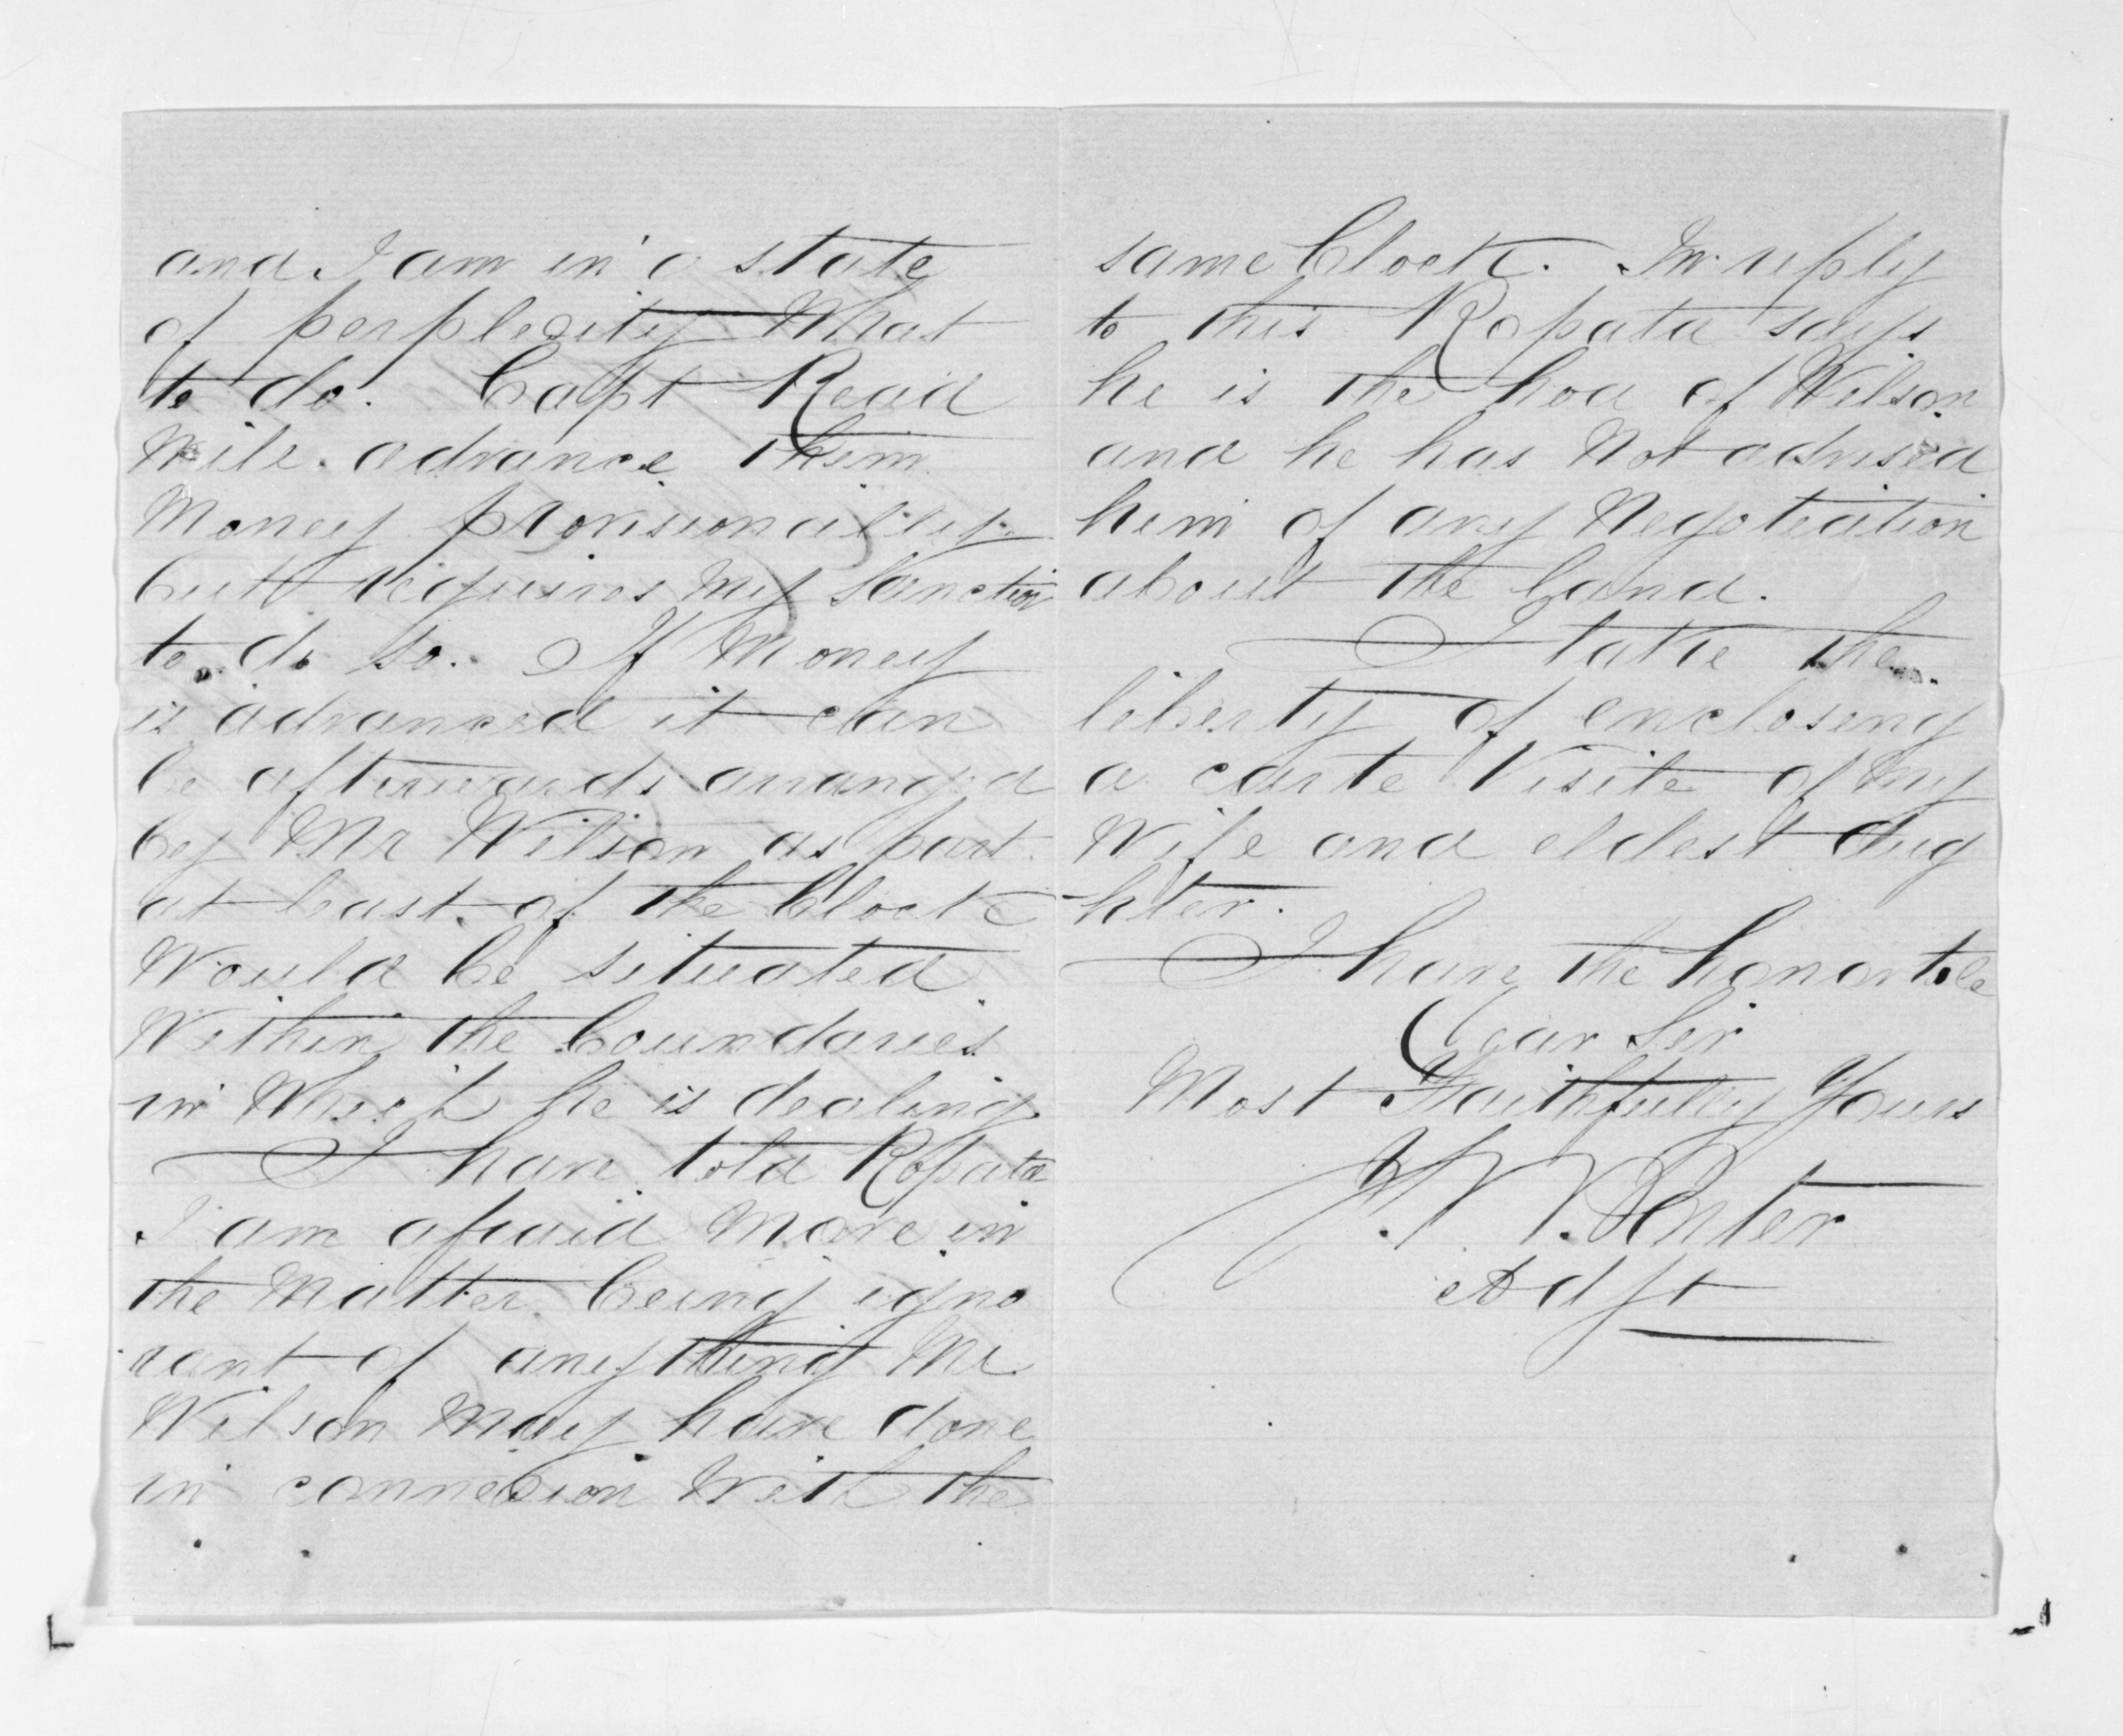 and I am in a state
of perplexity What
to do. Capt Read
Will advance them
Money provisionally
but requires my Sanction
to do so. If Money
is advanced it can
be afterwards arranged
by Mr Wilson as part
at least of the block
Would be situated
Within the boundaries
in Which he is dealing
I have told Ropata
I am afraid more in
the Matter being igno
rant of anything Mr
Wilson may have done
in connexion With the
same block. In reply
to this Ropata says
he is the hoa of Wilson
and he has Not advised
him of any Negotiation
about the land.
I take the
liberty of enclosing
a carte Visite of My
Wife and eldest daug
hter.
I have the honor to be
Dear Sir
Most Faithfully Yours
J. W. Porter
Adjt